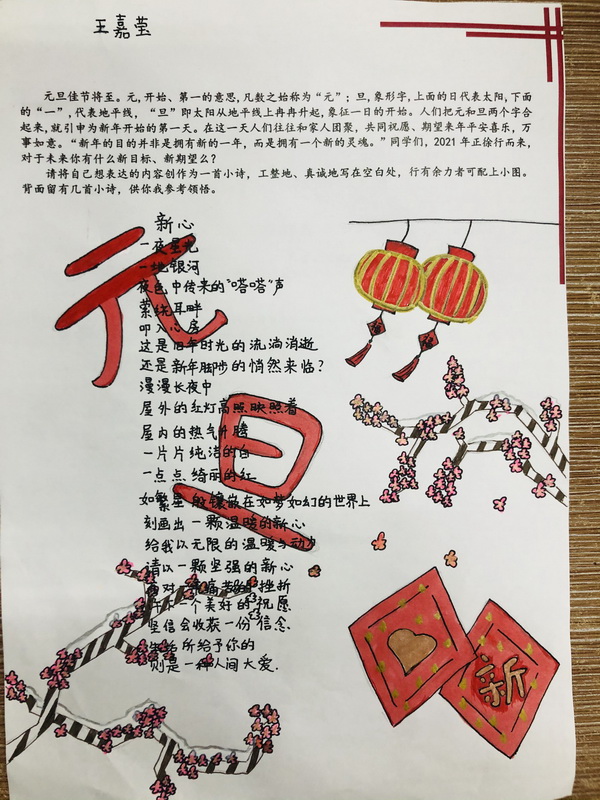 王嘉莹
元旦佳节将至。元,开始、第一的意思,凡数之始称为“元”;旦,象形字,上面的日代表太阳,下面
的“一”,代表地平线,“旦”即太阳从地平线上冉冉升起,象征一日的开始。人们把元和旦两个字合
起来,就引申为新年开始的第一天。在这一天人们往往和家人团聚,共同祝愿、期望来年平安喜乐,万
事如意。“新年的目的并非是拥有新的一年,而是拥有一个新的灵魂。”同学们,2021 年正徐行而来,
对于未来你有什么新目标、新期望么?
请将自己想表达的内容创作为一首小诗,工整地、真诚地写在空白处,行有余力者可配上小图。
背面留有几首小诗,供你我参考领悟。
新心
一夜星光
一地银河
夜色中传来的“嗒嗒”声
萦绕耳畔
叩入心房
这是旧年时光的流淌消逝
还是新年脚步的悄然来临?
漫漫长夜中
屋外的红灯高照映照着
屋内的热气升腾
一片片纯洁的白
一点点绮丽的红
如繁星般镶嵌在如梦如幻的世界上
刻画出一颗温暖的新心
给我以无限的温暖与动力
请以一颗坚强的新心
对 痛苦的挫折
一个美好的祝愿
坚信会收获一份信念
所给予你的
则是一种人间大爱.
元
旦
新